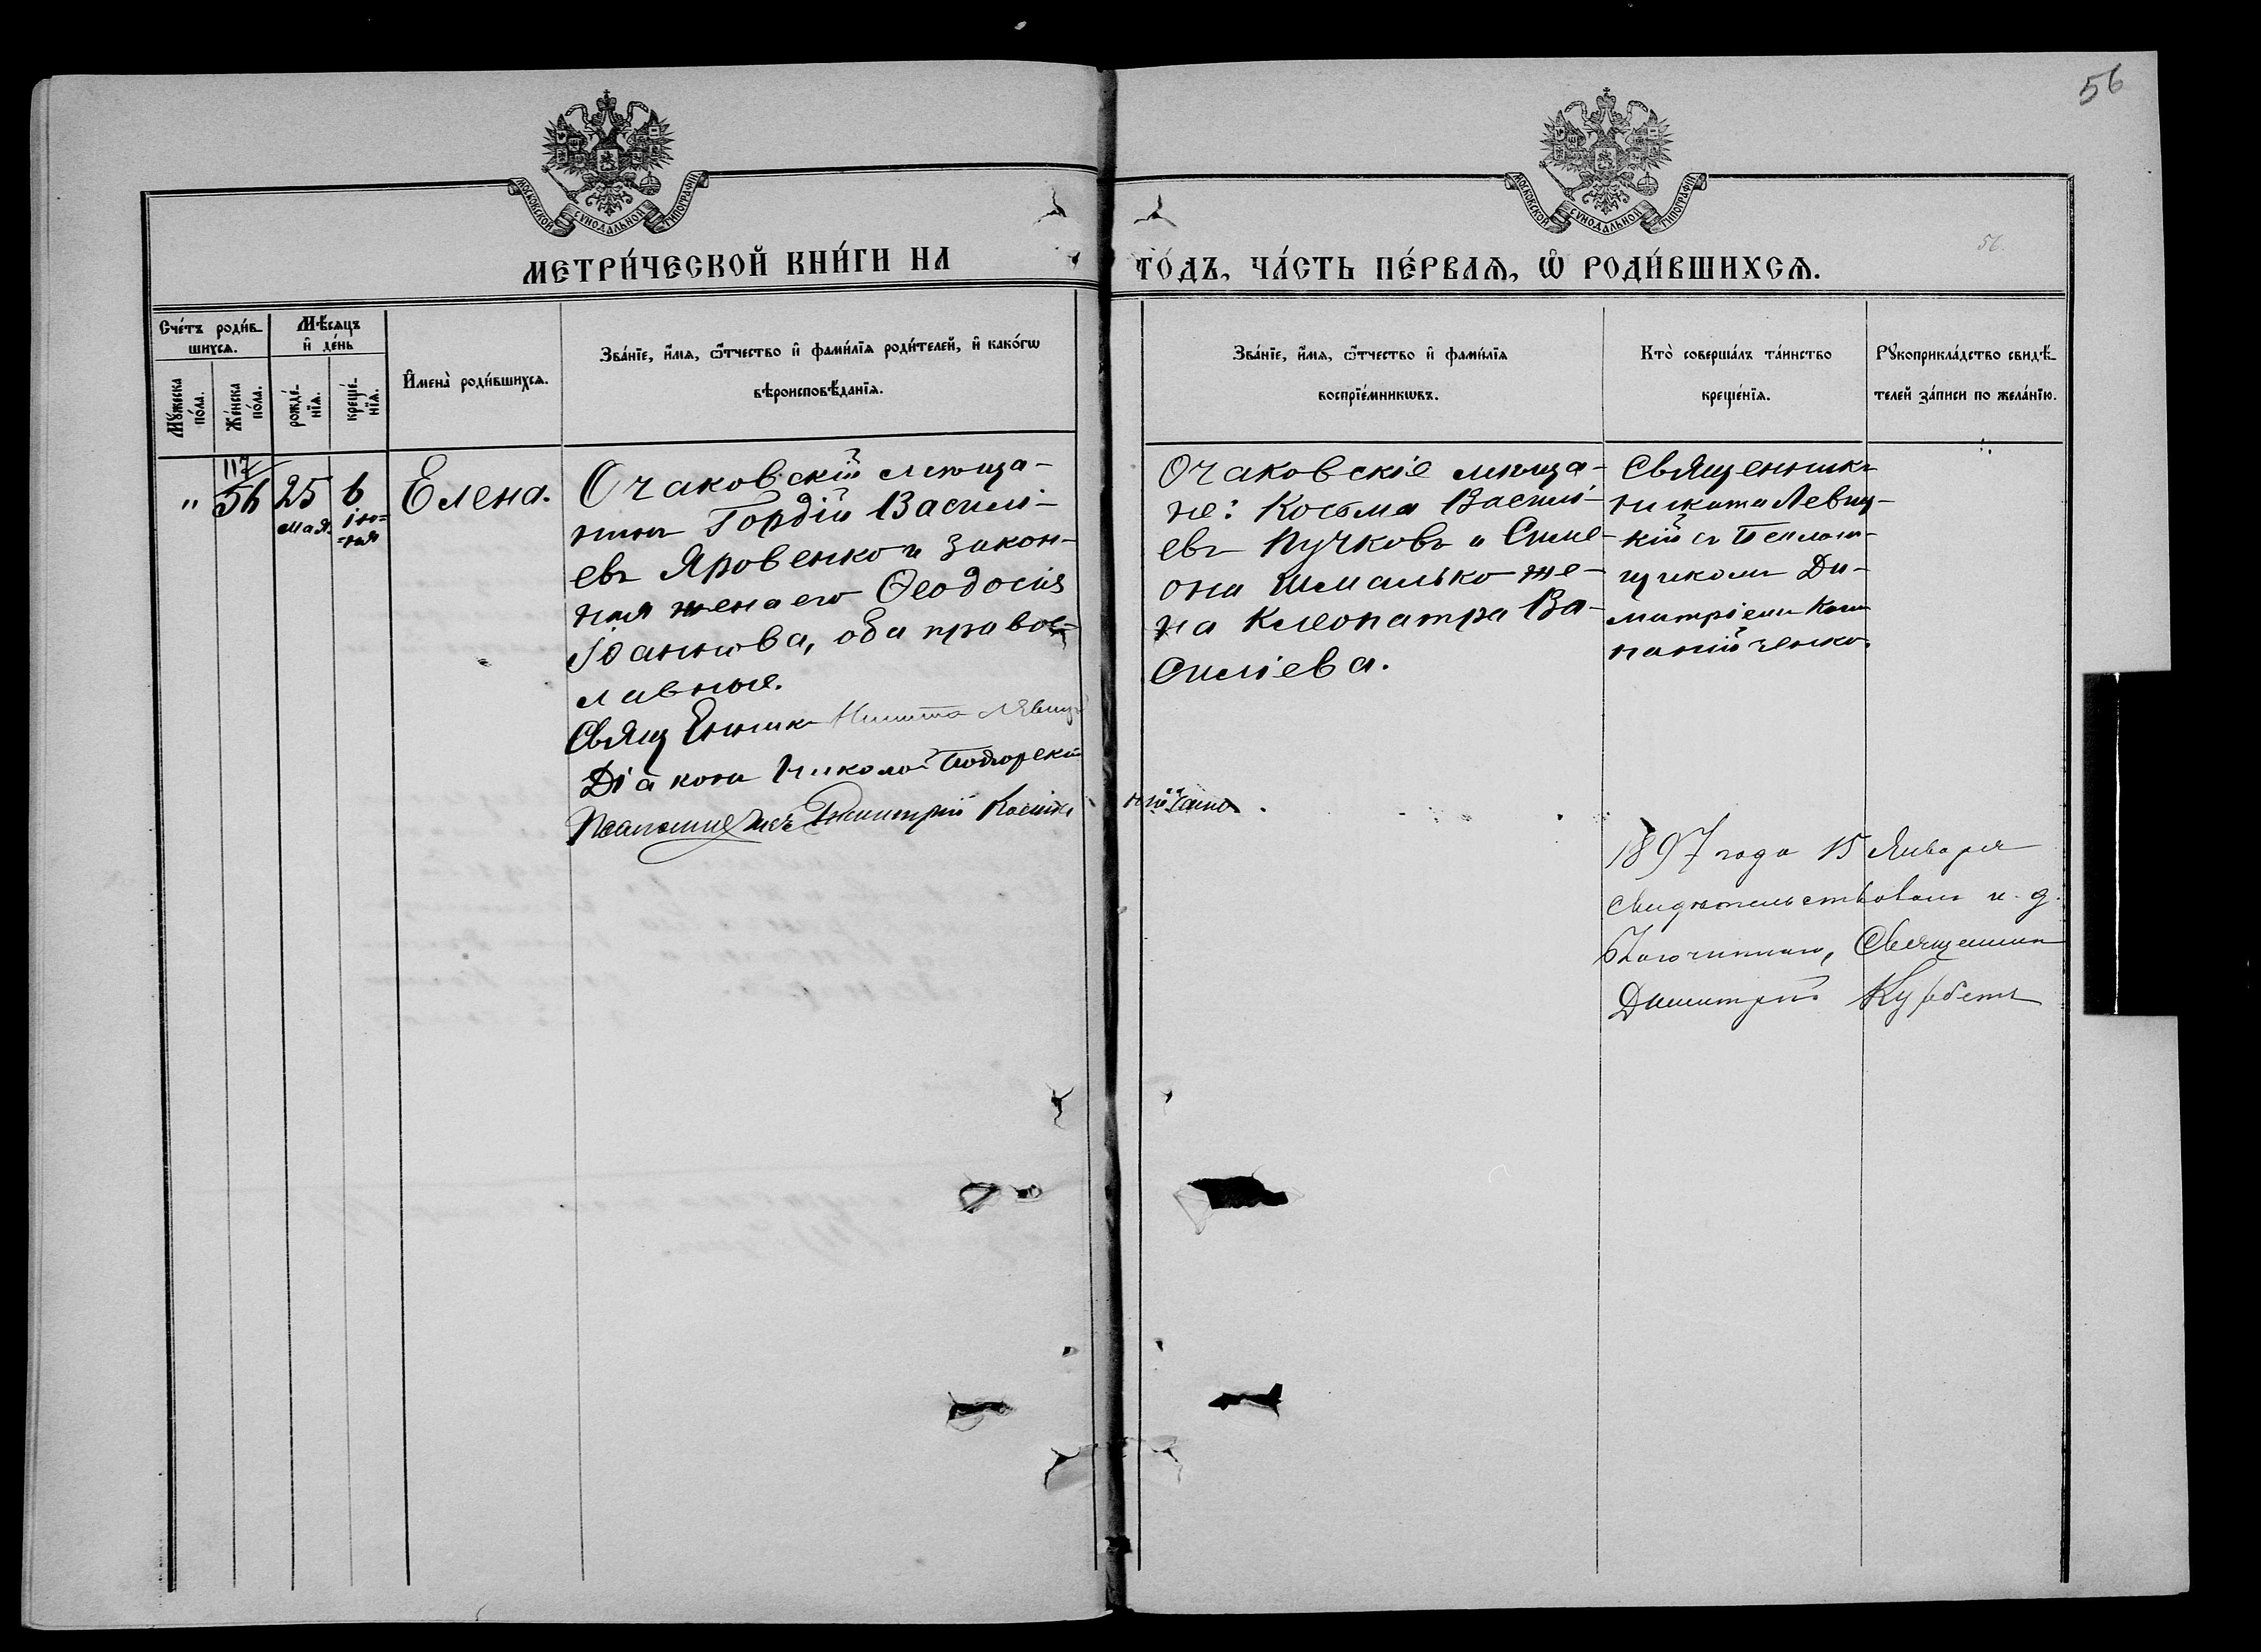 56
МОСКОВСКОЙ СѴНОДАЛЬНОЙ ТИПОГРАФІИ
МОСКОВСКОЙ СѴНОДАЛЬНОЙ ТИПОГРАФІИ
56.
МЕТРИ́ЧЕСКОЙ КНИ́ГИ НА
ГО́ДЪ, ЧА́СТЬ ПЕ́РВАѦ, Ѡ РОДИ́ВШИХСѦ.
Сче́тъ роди́в-
шихсѧ.
Мꙋ́жеска
по́ла.
Же́нска
по́ла.
Мѣ́сѧцъ
и҆ де́нь
рожде́-
нїѧ.
креще́-
нїѧ.
И҆мена̀ роди́вшихсѧ.
Зва́нїе, и҆́мѧ, ѻ҆́тчество и҆ фами́лїѧ роди́телей, и҆ како́гѡ
вѣроисповѣ́данїѧ.
Зва́нїе, и҆́мѧ, ѻ҆́тчество и҆ фами́лїѧ
воспрїе́мникѡвъ.
Кто̀ соверша́лъ та́инство
креще́нїѧ.
Рꙋкоприкла́дство свидѣ́-
телей за́писи по жела́нїю.
117
" 56 25 6
мая. ію-
=ня
Елена.
Очаковскій мѣща-
нинъ Гордій Василі-
евъ Яровенко и закон-
ная жена его Ѳеодосія
Іоаннова, оба правос-
лавные.
Священникъ Никита Левиц
Діаконъ Николай Подгорскій
Псаломщикъ Димитрій Кас
Очаковскіе мѣща-
не: Косьма Василі-
евъ Пучковъ и Симе-
она Шмалько же-
на Клеопатра Ва-
силіева.
Священникъ
Никита Левиц-
кій съ Псалом-
щикомъ Ди-
митріемъ Кас
панійченко.
1897 года 15 Января
свидѣтельствовалъ и. д.
благочиннаго, Священникъ
Димитрій Курбетъ